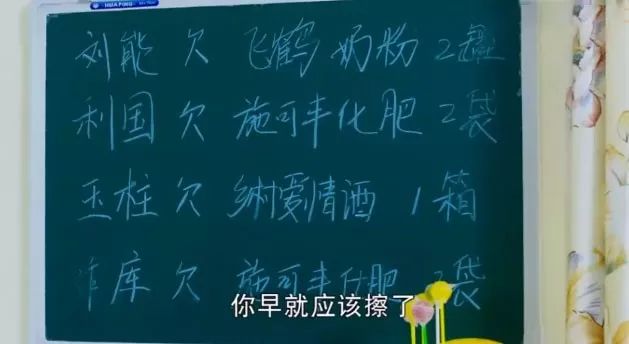 HUAPING
刘能 欠 飞鹤 奶粉 2罐
利国 欠 施可丰化肥 2袋
玉柱 欠 乡村爱情酒 1箱
库 欠 施可丰化肥 2袋
你早就应该擦了